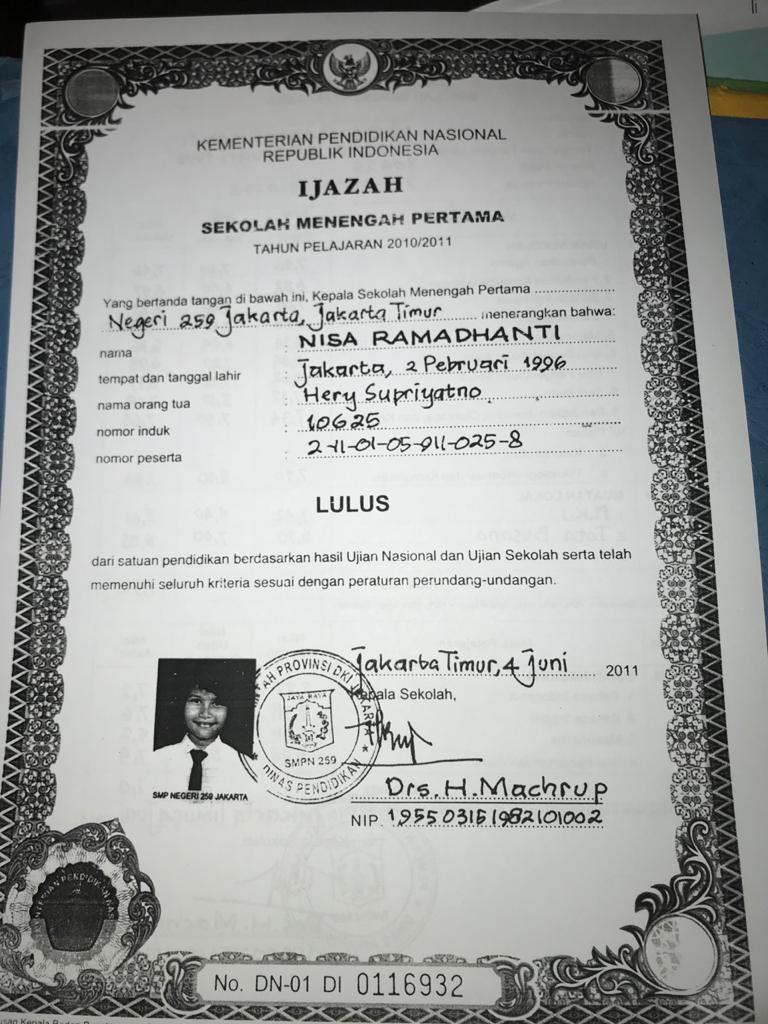 KEMENTERIAN PENDIDIKAN NASIONAL
REPUBLIK INDONESIA
IJAZAH
SEKOLAH MENENGAH PERTAMA
TAHUN PELAJARAN 2010/2011
Yang bertanda tangan di bawah ini, Kepala Sekolah Menengah Pertama
Negeri 259 Jakarta, Jakarta Timur menerangkan bahwa:
nama : NISA RAMADHANTI
tempat dan tanggal lahir : Jakarta, 2 Pebruari 1996
nama orang tua : Hery Supriyatno
nomor induk : 10625
nomor peserta : 2-11-01-05-911-025-8
LULUS
dari satuan pendidikan berdasarkan hasil Ujian Nasional dan Ujian Sekolah serta telah
memenuhi seluruh kriteria sesuai dengan peraturan perundang-undangan.
Jakarta Timur, 4 Juni 2011
Kepala Sekolah,
AH PROVINSI DKI JAKARTA
JAYA RAYA
SMPN 259
DINAS PENDIDIKAN
SMP NEGERI 259 JAKARTA
Drs. H. Machrup
NIP. 195503151982101002
No. DN-01 DI 0116932